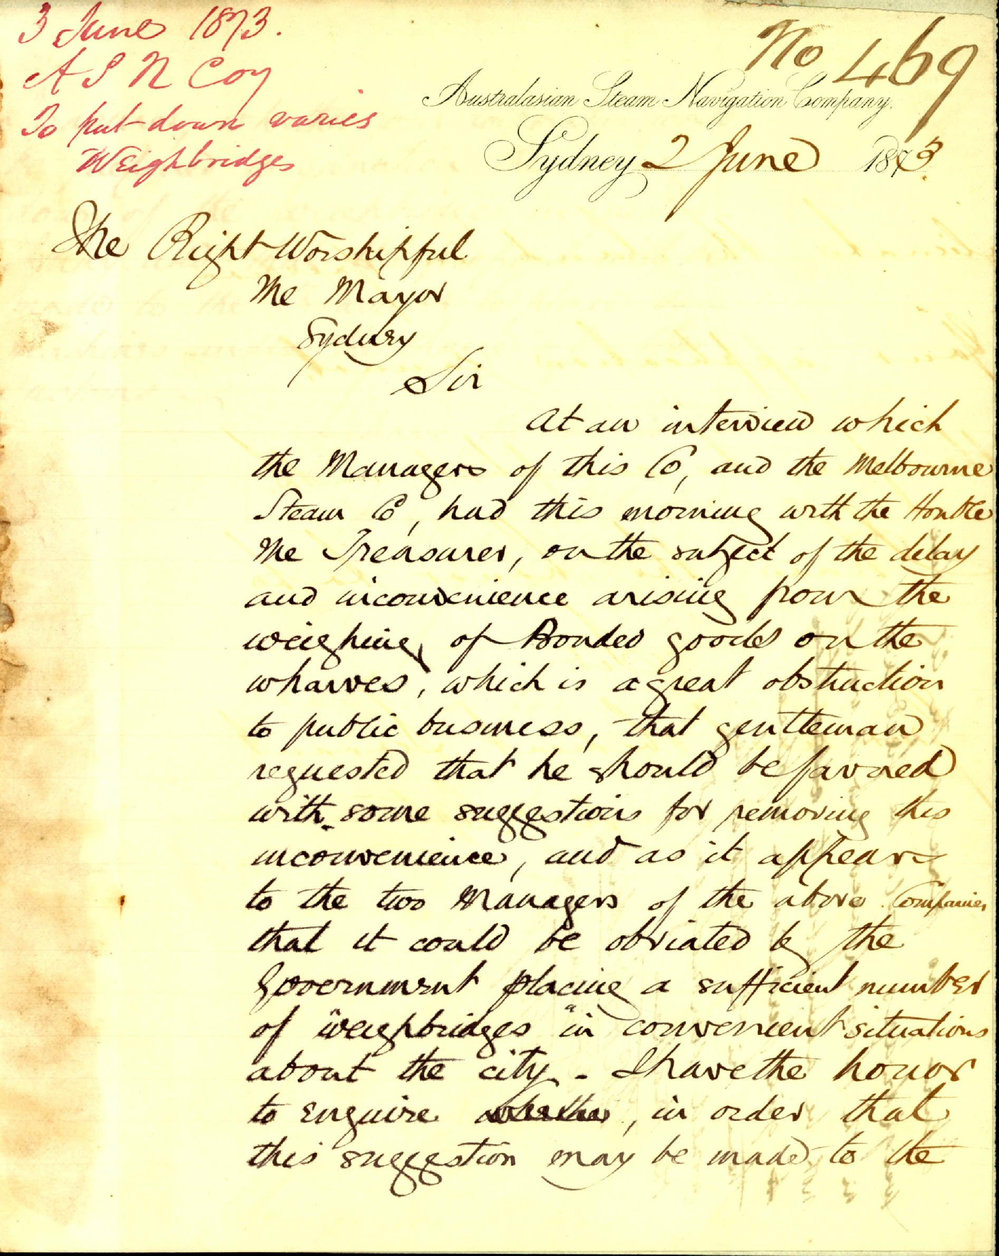 3 June 1873.
A S N Coy
To put down varies
Weighbridges
No 469
Australasian Steam Navigation Company.
Sydney 2 June 1873.
The Right Worshipful
The Mayor
Sydney
Sir
At an interview which
the Managers of this Co, and the Melbourne
Steam Co, had this morning with the Honble
the Treasurer, on the subject of the delay
and inconvenience arising from the
weighing, of Bonded goods on the
wharves, which is a great obstruction
to public business, that gentleman
requested that he should be favored
with some suggestions for removing this
inconvenience, and as it appears
to the two Managers of the above Companies
that it could be obviated by the
Government placing a sufficient number
of "weighbridges" in convenient situations
about the city. - I have the honor
to enquire whether, in order that
this suggestion may be made to the